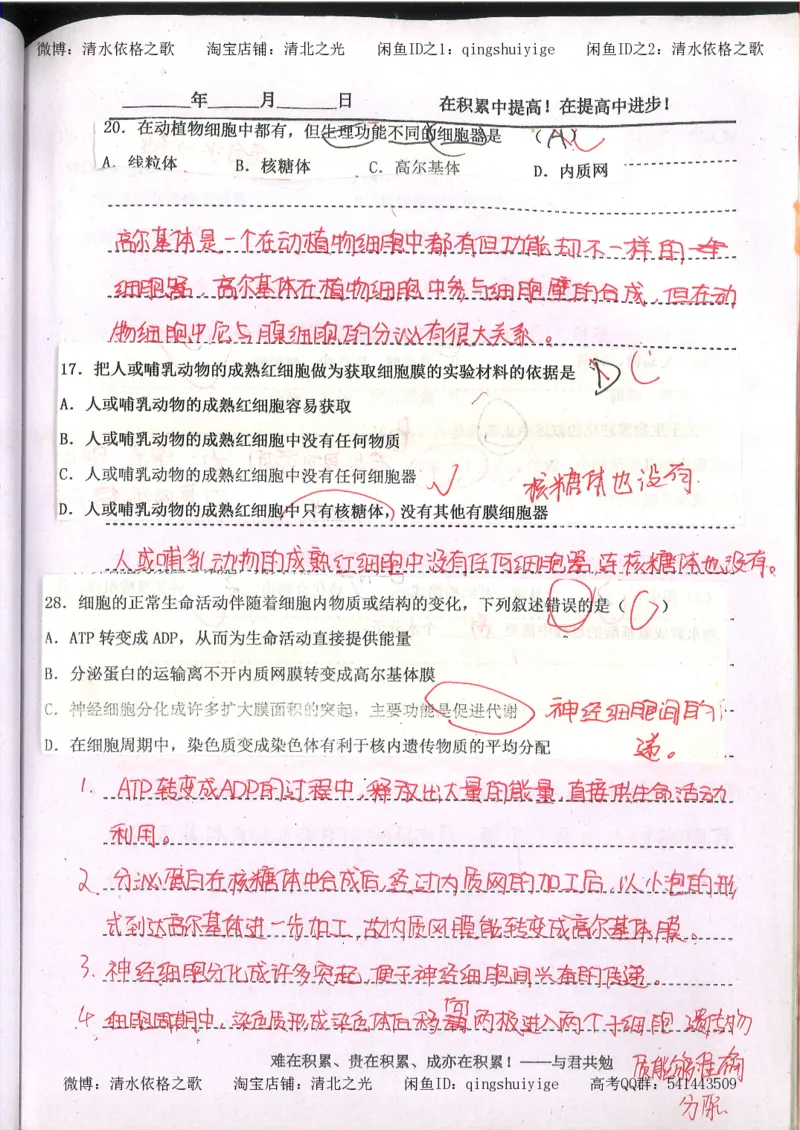 微博：清水依格之歌 淘宝店铺：清北之光 闲鱼ID之1：qingshuiyige 闲鱼ID之2：清水依格之歌
年 月 日 在积累中提高！在提高中进步！
20．在动植物细胞中都有，但生理功能不同的细胞器是 （A）C
A．线粒体 B．核糖体 C．高尔基体 D．内质网
高尔基体是一个在动植物细胞中都有但功能却不一样的
细胞器，高尔基体在植物细胞中参与细胞壁的合成，但在动
物细胞中后与腺细胞的分泌有很大关系。
17．把人或哺乳动物的成熟红细胞做为获取细胞膜的实验材料的依据是 D C
A．人或哺乳动物的成熟红细胞容易获取
B．人或哺乳动物的成熟红细胞中没有任何物质
C．人或哺乳动物的成熟红细胞中没有任何细胞器 核糖体也没有.
D．人或哺乳动物的成熟红细胞中只有核糖体，没有其他有膜细胞器
人或哺乳动物的成熟红细胞中没有任何细胞器,连核糖体也没有。
28．细胞的正常生命活动伴随着细胞内物质或结构的变化，下列叙述错误的是（C）
A．ATP转变成ADP，从而为生命活动直接提供能量
B．分泌蛋白的运输离不开内质网膜转变成高尔基体膜
C．神经细胞分化成许多扩大膜面积的突起，主要功能是促进代谢 神经细胞间的
D．在细胞周期中，染色质变成染色体有利于核内遗传物质的平均分配 递。
1. ATP转变成ADP的过程中,释放出大量的能量,直接供生命活动
利用。
2. 分泌蛋白在核糖体中合成后,经过内质网的加工后,以小泡的形
式到达高尔基体进一步加工,故内质网膜能转变成高尔基体膜。
3. 神经细胞分化成许多突起,便于神经细胞间兴奋的传递。
4. 细胞周期中,染色质形成染色体后移向两极进入两个子细胞,遗传物
质能够准确
分配
难在积累、贵在积累、成亦在积累！——与君共勉
微博：清水依格之歌 淘宝店铺：清北之光 闲鱼ID：qingshuiyige 高考QQ群：541443509